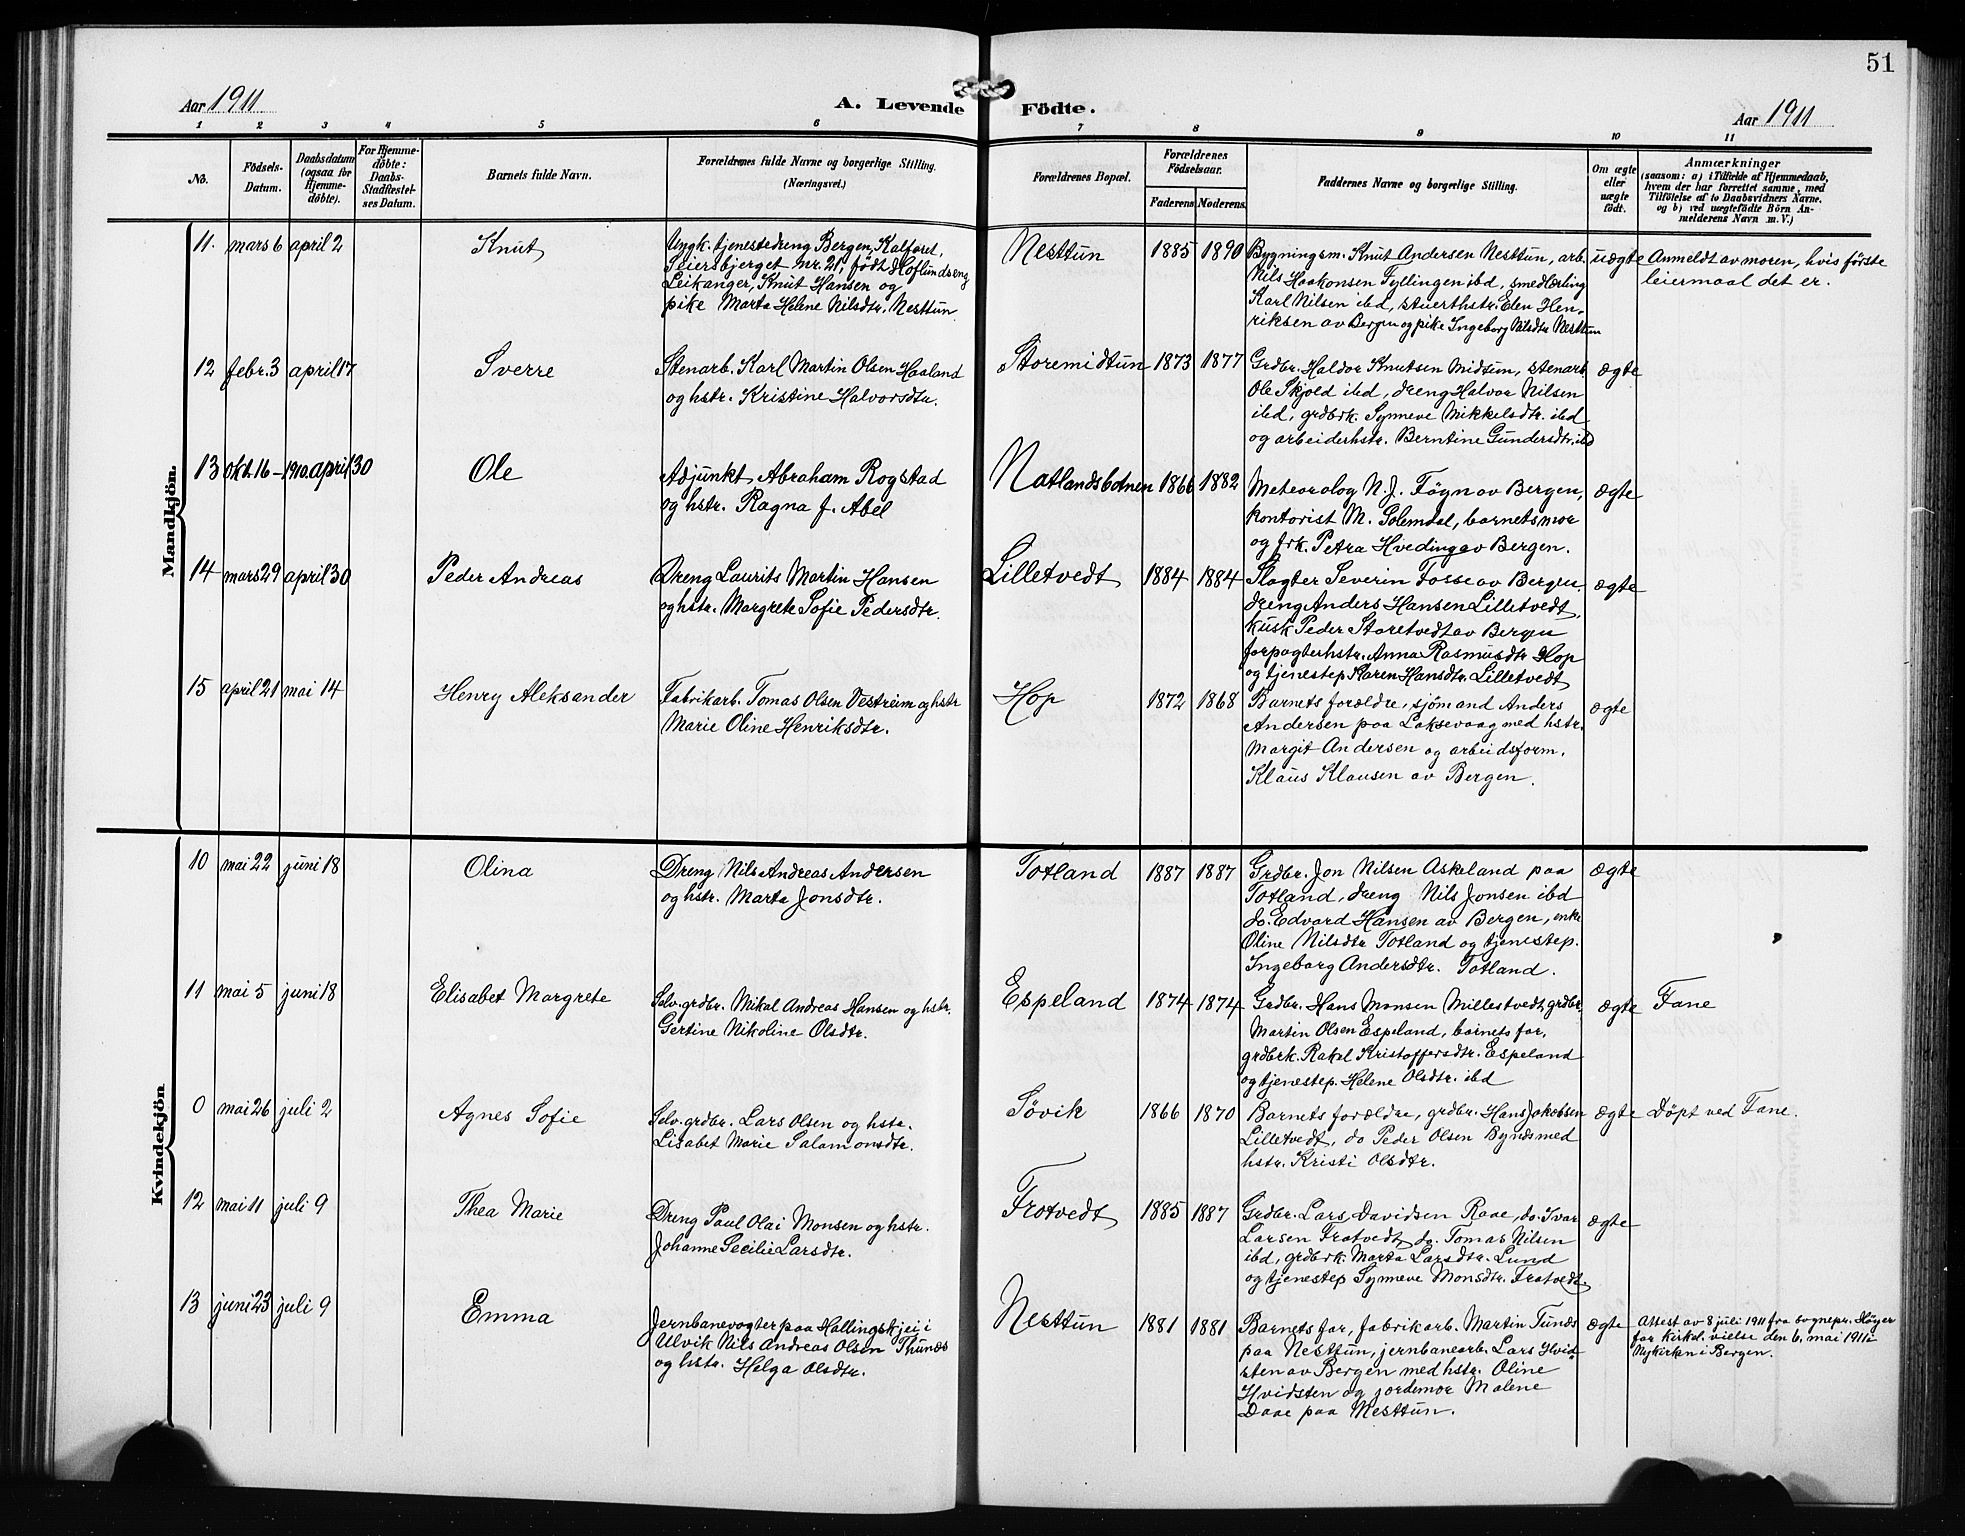 51
Aar 1911
A. Levende Födte.
Aar 1911
1 2 3 4 5 6 7 8 9 10 11
No.
Födsels-
Datum.
Daabsdatum
(ogsaa for
Hjemme-
döbte).
For Hjemme-
döbte:
Daabs-
Stadfæstel-
ses Datum.
Barnets fulde Navn.
Forældrenes fulde Navne og borgerlige Stilling.
(Næringsvei.)
Forældrenes Bopæl.
Forældrenes
Födselsaar.
Faderens
Moderens.
Faddernes Navne og borgerlige Stilling.
Om ægte
eller
uægte
födt.
Anmærkninger
(saasom: a) i Tilfælde af Hjemmedaab,
hvem der har forrettet samme, med
Tilföielse af to Daabsvidners Navne.
og b) ved uægtefödte Börn An-
melderens Navn m. V.)
Mandkjön.
11. mars 6 april 2
Knut
Ungk. tjenestedreng Bergen, Kalfaret,
Seiersbjerget nr. 21, født Hoflundseng
Leikanger, Knut Hansen og
pike Marta Helene Nilsdtr. Nesttun
Nesttun
1885 1890
Bygningsm. Knut Andersen Nesttun, arb.
Nils Haakonsen Fyllingen ibd, smedlærling
Karl Nilsen ibd, stuerthstr. Elen Hen-
riksen av Bergen og pike Ingeborg Nilsdtr Nesttun
uægte
Anmeldt av moren, hvis første
leiermaal det er.
12 febr. 3 april 17
Sverre
Stenarb. Karl Martin Olsen Haaland
og hstr. Kristine Halvorsdtr.
Storemidtun
1873 1877
Grdbr. Haldor Knutsen Midtun, stenarb.
Ole Skjold ibd, dreng Halvor Nilsen
ibd, grdbrk. Synneve Mikkelsdtr. ibd
og arbeiderhstr. Berntine Gundersdtr. ibd
ægte
13 okt. 16 - 1910. april 30
Ole
Adjunkt Abraham Rogstad
og hstr. Ragna f. Abel
Natlandsbotnen
1866 1882
Meteorolog N. J. Føyn av Bergen,
kontorist M. Solemdal, barnets mor
og frk. Petra Hveding av Bergen.
ægte
14 mars 29 april 30
Peder Andreas
Dreng Laurits Martin Hansen
og hstr. Margrete Sofie Pedersdtr.
Lilletvedt
1884 1884
Slagter Severin Fosse av Bergen,
dreng Anders Hansen Lilletvedt,
kusk Peder Storetvedt av Bergen
forpagterhstr. Anna Rasmusdtr Hop
og tjenestep. Karen Hansdtr. Lilletvedt
ægte
15 april 21 mai 14
Henry Aleksander
Fabrikarb. Tomas Olsen Vestreim og hstr
Marie Oline Henriksdtr.
Hop
1872 1868
Barnets forældre, sjømand Anders
Andersen paa Laksevaag med hstr.
Margit Andersen og arbeidsform.
Klaus Klausen av Bergen.
ægte
Kvindekjön
10 mai 22 juni 18
Olina
Dreng Nils Andreas Andersen
og hstr. Marta Jonsdtr.
Totland
1887 1887
Grdbr. Jon Nilsen Askeland paa
Totland, dreng Nils Jonsen ibd
do. Edvard Hansen av Bergen, enke
Oline Nilsdtr Totland og tjenestep.
Ingeborg Andersdtr. Totland.
ægte
11 mai 5 juni 18
Elisabet Margrete
Selv. grdbr. Mikal Andreas Hansen og hstr.
Gertine Nikoline Olsdtr.
Espeland
1874 1874
Grdbr. Hans Monsen Millestvedt, grdbr.
Martin Olsen Espeland, barnets far,
grdbrk. Rakel Kristoffersdtr. Espeland
og tjenestep. Helene Olsdtr. ibd
ægte
Fane
0 mai 26 juli 2
Agnes Sofie
Selv. grdbr. Lars Olsen og hstr.
Lisabet Marie Salamonsdtr.
Søvik
1866 1870
Barnets forældre, grdbr. Hans Jakobsen
Lilletvedt, do Peder Olsen Byndes med
hstr. Kristi Olsdtr.
ægte
Døpt ved Fane.
12 mai 11 juli 9
Thea Marie
Dreng Paul Olai Monsen og hstr.
Johanne Secilie Larsdtr.
Frotvedt
1885 1887
Grdbr. Lars Davidsen Raae, do. Ivar
Larsen Frotvedt, do. Tomas Nilsen
ibd, grdbrk. Marta Larsdtr. Lund
og tjenestep Synneve Monsdtr. Frotvedt.
ægte
13 juni 23 juli 9
Emma
Jernbanevogter paa Hallingskjei i
Ulvik Nils Andreas Olsen Thunes
og hstr. Helga Olsdtr.
Nesttun
1881 1881
Barnets far, fabrikarb. Martin Tunes
paa Nesttun, jernbanearb. Lars Hvid-
sten av Bergen med hstr. Oline
Hvidsten og jordemor Malene
Daae paa Nesttun.
ægte
Attest av 8 juli 1911 fra sognepr. Høyer
for kirkel. vielse den 6. mai 1911 i
Nykirken i Bergen.